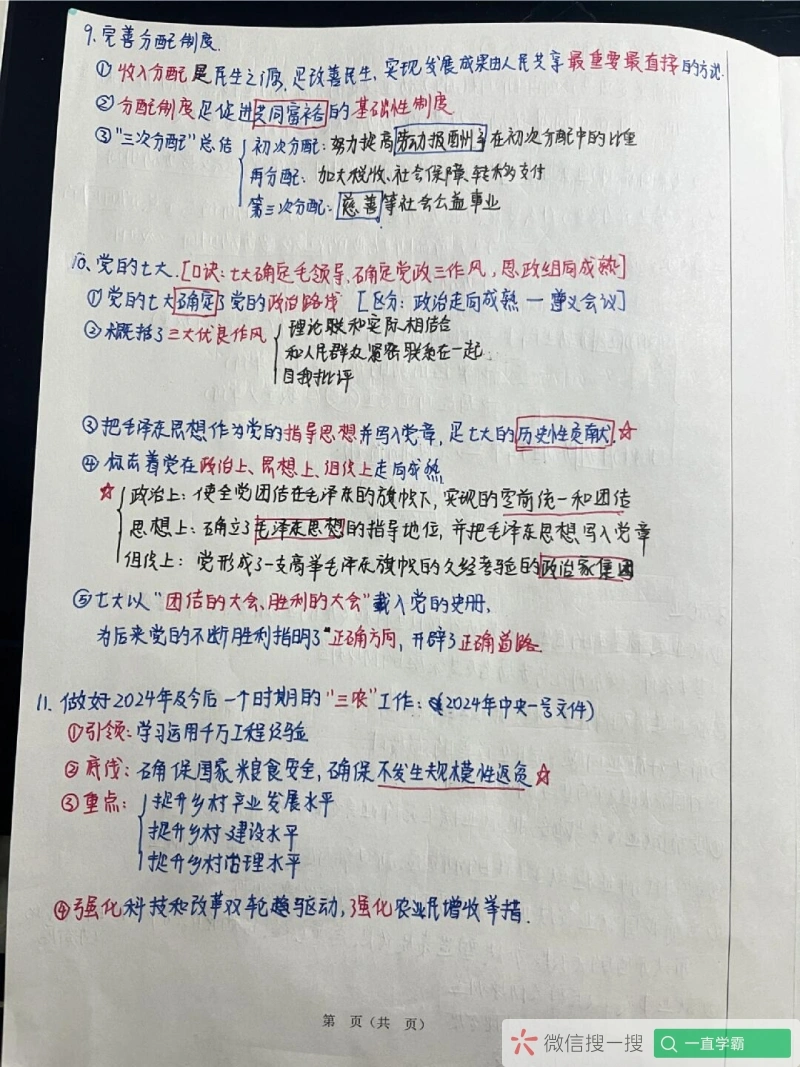 9.完善分配制度.
①收入分配是民生之源,是改善民生、实现发展成果由人民共享最重要最直接的方式.
②分配制度是促进共同富裕的基础性制度
③"三次分配"总结 初次分配:努力提高劳动报酬率在初次分配中的比重
再分配:加大税收、社会保障、转移支付
第三次分配:慈善等社会公益事业
10、党的七大.[口诀:七大确定毛领导、确定党政三作风,思政组同成熟]
①党的七大确定了党的政治路线 [区分:政治走向成熟—遵义会议]
②概括了三大优良作风 理论联和实际相结合
和人民群众紧密联系在一起.
自我批评
③把毛泽东思想作为党的指导思想并写入党章,是七大的历史性贡献.☆
④标志着党在政治上、思想上、组织上走向成熟
☆ 政治上:使全党团结在毛泽东的旗帜下,实现的空前统一和团结
思想上:确立了毛泽东思想的指导地位,并把毛泽东思想写入党章
组织上:党形成了一支高举毛泽东旗帜的久经考验的政治家集团
⑤七大以"团结的大会、胜利的大会"载入党的史册,
为后来党的不断胜利指明了正确方向,开辟了正确道路.
11.做好2024年及今后一个时期的"三农"工作:(2024年中央一号文件)
①引领:学习运用千万工程经验
②底线:确保国家粮食安全,确保不发生规模性返贫☆
③重点: 提升乡村产业发展水平
提升乡村建设水平
提升乡村治理水平
④强化科技和改革双轮驱动,强化农业民增收举措.
第 页(共 页)
微信搜一搜
一直学霸